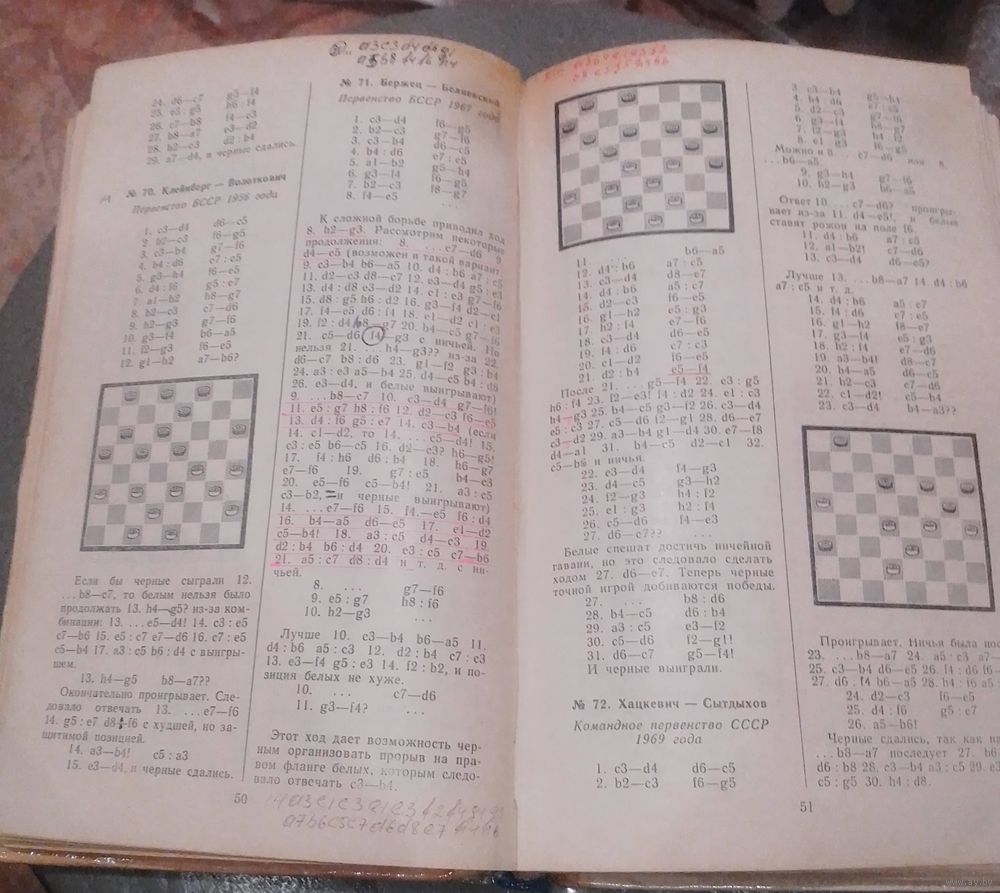 24. d6—c7 g5—f4
25. e3 : g5 h6 : f4
26. c7—b8 f4—e3
27. b8—a7 e3—d2
28. b2—c3 d2 : b4
29. a7—d4, и черные сдались.
№ 70. Клейнберг — Волоткович
Первенство БССР 1956 года
1. c3—d4 d6—c5
2. b2—c3 f6—g5
3. c3—b4 g7—f6
4. b4 : d6 e7 : c5
5. g3—h4 f6—e5
6. d4 : f6 g5 : e7
7. a1—b2 h8—g7
8. b2—c3 c7—d6
9. h2—g3 g7—f6
10. g3—f4 b6—a5
11. f2—g3 f6—e5
12. g1—h2 a7—b6?
Если бы черные сыграли 12.
...b8—c7, то белым нельзя было
продолжать 13. h4—g5? из-за ком-
бинации: 13. ...e5—d4! 14. c3 : e5
c7—b6 15. e5 : c7 e7—d6 16. c7 : e5
c5—b4 17. a3 : c5 b6 : d4 с выигры-
шем.
13. h4—g5 b8—a7??
Окончательно проигрывает. Сле-
довало отвечать 13. ...e7—f6
14. g5 : e7 d8 : f6 с худшей, но за-
щитимой позицией.
14. a3—b4! c5 : a3
15. e3—d4, и черные сдались.
50
№ 71. Бержец — Белиевский
Первенство БССР 1967 года
1. c3—d4 f6—g5
2. b2—c3 g7—f6
3. c3—b4 d6—c5
4. b4 : d6 e7 : c5
5. a1—b2 g5—h4
6. g3—f4 f6—g5
7. b2—c3 f8—g7
8. f4—e5 ...
К сложной борьбе приводил ход
8. h2—g3. Рассмотрим некоторые
продолжения: 8. ...c7—d6 9.
d4—e5 (возможен и такой вариант
9. c3—b4 b6—a5 10. d4 : b6 a7 : c5
11. d2—c3 d8—c7 12. e3—d4 g5 : e3
13. d4 : d8 e3—d2 14. c1 : e3 g7—f6
15. d8 : g5 h6 : d2 16. g3—f4 d2—c1
17. f4—e5 d6 : f4 18. e1—d2 c1 : e3
19. f2 : d4 b8—g7 20. b4—c5 g7—f6
21. c5—d6 f4—g3 с ничьей. Но
нельзя 21. ... h4—g3?? из-за 22.
d6—c7 b8 : d6 23. g1—f2 g3 : b4
24. a3 : e3 a5—b4 25. d4—c5 b4 : d6
26. e3—d4, и белые выигрывают)
9. ...b8—c7 10. c3—d4 g7—f6!
11. e5 : g7 h8 : f6 12. d2—c3 f6—e5
13. d4 : f6 g5 : e7 14. c3—b4 (если
14. c1—d2, то 14. ... c5—d4! 15.
c3 : e5 b6—c5 16. d2—c3? h6—g5!
17. f4 : h6 d6 : b4 18. h6—g7
e7—f6 19. g7 : e5 b4—c3
20. e5—f6 c5—b4! 21. a3 : c5
c3—b2, и черные выигрывают)
14. ...e7—f6 15. f4—e5 f6 : d4
16. b4—a5 d6—e5 17. e1—d2
c5—b4! 18. a3 : c5 d4—e3 19.
d2 : b4 b6 : d4 20. e3 : c5 c7—b6
21. a5 : c7 d8 : d4 и т. д. с ни-
чьей.
8. ... g7—f6
9. e5 : g7 h8 : f6
10. h2—g3 ...
Лучше 10. c3—b4 b6—a5 11.
d4 : b6 a5 : c3 12. d2 : b4 c7 : c3
13. e3—f4 g5 : e3 14. f2 : b2, и по-
зиция белых не хуже.
10. ... c7—d6
11. g3—f4? ...
Этот ход дает возможность чер-
ным организовать прорыв на пра-
вом фланге белых, которым следо-
вало отвечать c3—b4.
11. ... b6—a5
12. d4 : b6 a7 : c5
13. c3—d4 d8—e7
14. d4 : b6 a5 : c7
15. d2—c3 f6—e5
16. g1—h2 e5 : g3
17. h2 : f4 e7—f6
18. c3—d4 d6—e5
19. f4 : d6 c7 : c3
20. c1—d2 f6—e5
21. d2 : b4 e5—f4
После 21. ...g5—f4 22. e3 : g5
h6 : f4 23. f2—e3! f4 : d2 24. e1 : c3
h4—g3 25. b4—c5 g3—f2 26. c3—d4
e5 : c3 27. c5—d6 f2—g1 28. d6—e7
c3—d2 29. a3—b4 g1—d4 30. e7—f8
d4—a1 31. b4—c5 d2—c1 32.
c5—b6 и ничья.
22. e3—d4 f4—g3
23. d4—c5 g3—h2
24. f2—g3 h4 : f2
25. e1 : g3 h2 : f4
26. c5—d6 f4—e3
27. d6—c7?? ...
Белые спешат достичь ничейной
гавани, но это следовало сделать
ходом 27. d6—e7. Теперь черные
точной игрой добиваются победы.
27. ... b8 : d6
28. b4—c5 d6 : b4
29. a3 : c5 e3—f2
30. c5—d6 f2—g1!
31. d6—c7 g5—f4!
И черные выиграли.
№ 72. Хацкевич — Сытдыхов
Командное первенство СССР
1969 года
1. c3—d4 d6—c5
2. b2—c3 f6—g5
3. c3—b4 g5—h4
4. b4 : d6 e7 : c5
Можно и 8. ...c7—d6 или 8.
...b6—a5.
9. g3—h4 g7—f6
10. h2—g3 b6—a5
Ответ 10. ...c7—d6? проигры-
вает из-за 11. d4—e5!, и белые
ставят рожон на поле f6.
11. d4 : b6 a7 : c5
12. a1—b2! c7—d6
13. c3—d4 d6—e5?
Лучше 13. ...b8—a7 14. d4 : b6
a7 : c5 и т. д.
14. d4 : b6 a5 : c7
15. g1—h2 f8—e7
17. g3—f4 e5 : g3
18. h2 : f4 e7—d6
19. a3—b4! d8—c7
20. b4—a5 d6—e5
21. b2—c3 c7—d6
22. c1—d2! c5—b4
23. c3—d4 b4—a3??
Проигрывает. Ничья была
23. ...b8—a7 24. a5 : c3 a7—
25. c3—b4 d6—e5 26. f4 : d6
27. d6 : f4 b6—a5 28. h4 : f6 a5 :
24. d2—c3 f6—e5
25. d4 : f6 g5 : e7
26. a5—b6!
Черные сдались, так как
...b8—a7 последует 27. b6
d6 : b8 28. c3—b4 a3 : c5 29. e3
c5 : g5 30. h4 : d8.
51